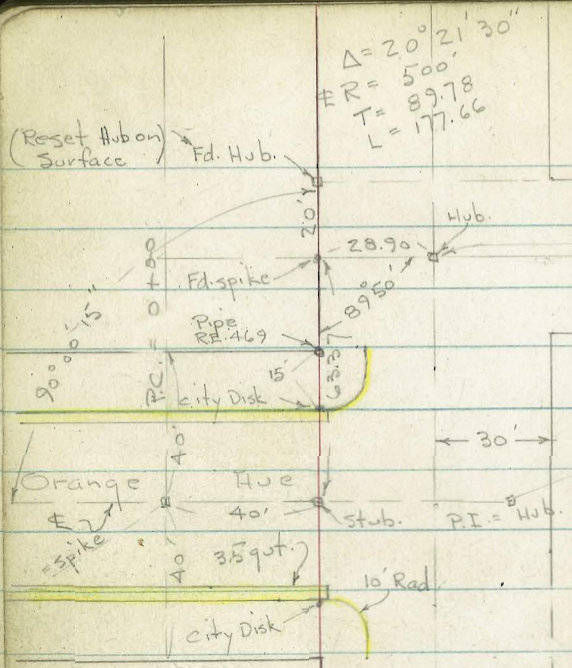 Δ = 20° 21' 30"
℄ R = 500'
T = 89.78
L = 177.66
(Reset Hub on
Surface)
Fd. Hub.
20'
Hub.
28.90
Fd. spike
89° 50'
90° 00' 15"
P.C. = 0+00
Pipe
R.E. 469
15'
63.37
city Disk
30'
40'
Orange Ave
℄
40'
Stub.
P.I. = Hub.
spike
40'
3.5 gut.
10' Rad
city Disk